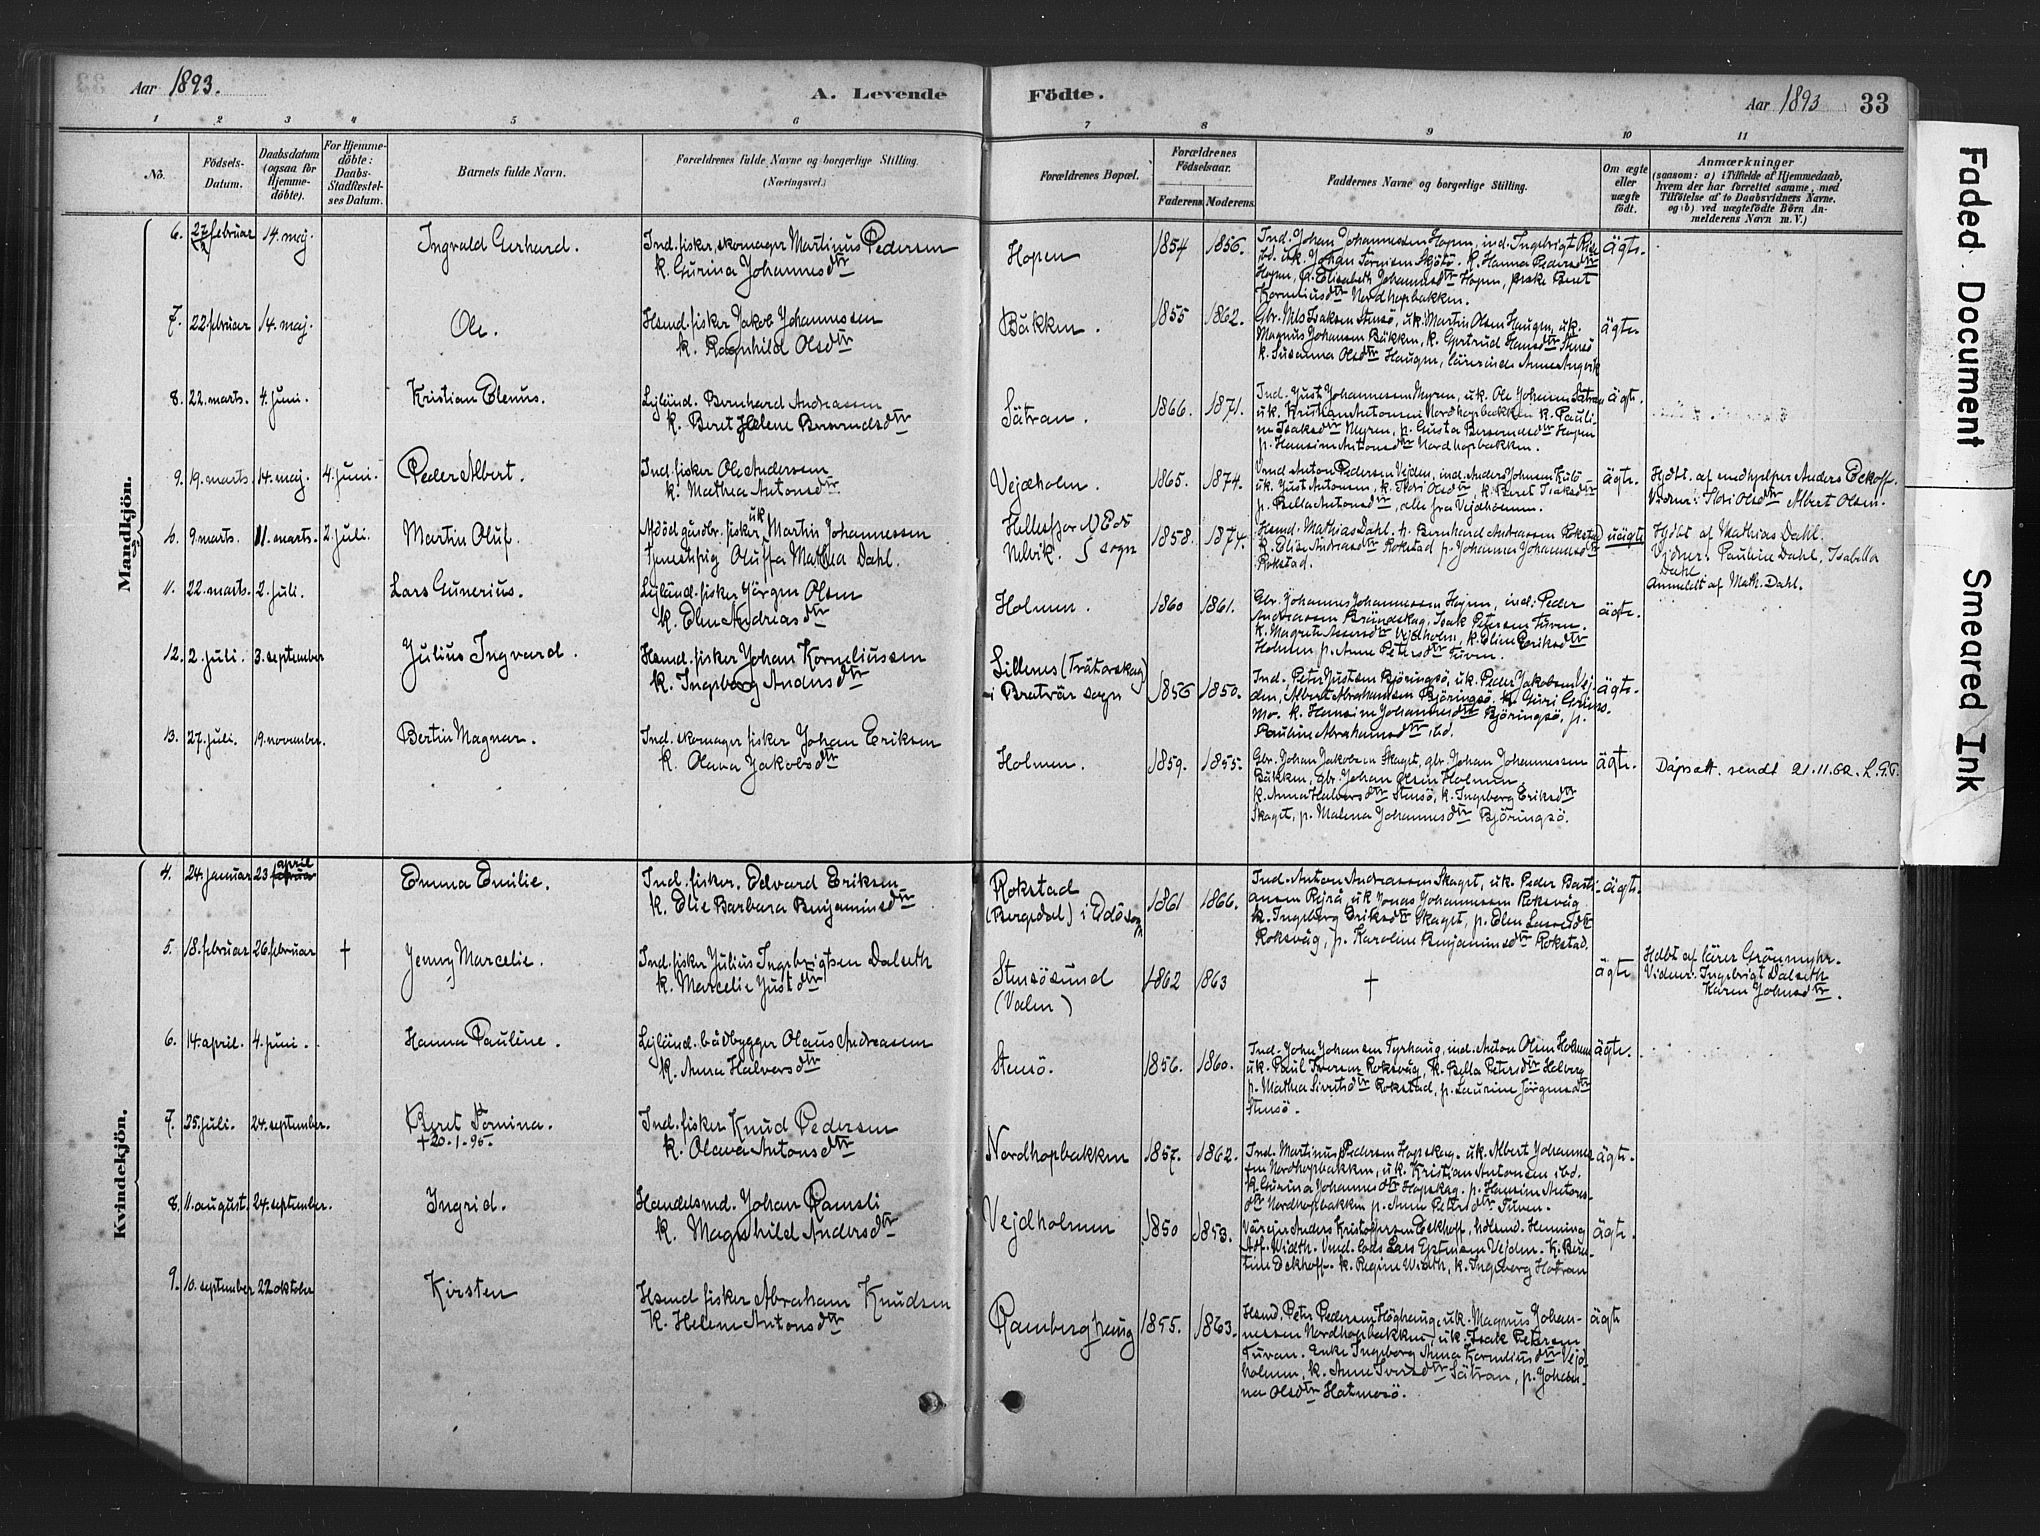 Aar 1893.
A. Levende Födte.
Aar 1893
33
1 2 3 4 5 6 7 8 9 10 11
No.
Födsels-Datum.
Daabsdatum (ogsaa för Hjemme-döbte).
For Hjemme-döbte: Daabs-Stadfæstel-ses Datum.
Barnets fulde Navn.
Forældrenes fulde Navne og borgerlige Stilling.
(Næringsvei.)
Forældrenes Bopæl.
Forældrenes Födselsaar.
Faderens Moderens
Faddernes Navne og borgerlige Stilling.
Om ægte eller uægte født.
Anmærkninger
(saasom: a) i Tilfælde af Hjemmedaab,
hvem der har forrettet samme, med
Tilföielse af to Daabsvidners Navne.
og b) ved uægtefödte Börn An-
melderens Navn m. V.)
Mandkjön.
6. 27 februar 14. maj. Ingvald Gerhard.
Ind. fisker, skomager Martinus Pedersen
k. Gurina Johannesdtr
Hopen 1854 1856.
Ind. Johan Johannessen Hopen, ind. Ingebrigt
k. Hanna Pedersdtr
Hopen, p. Elisabeth Johannesdtr Hopen, pike Beret
Korneliusdtr Nordhopbakken.
ägte.
7. 22. februar 14. maj. Ole.
Hsmd. fisker Jakob Johannessen
k. Ragnhild Olsdtr
Bakken. 1855 1862.
Gbr. Nils Isaksen Stensö, uk. Martin Olsen Haugen, uk.
Magnus Johansen Bakken, k. Gertrud Hansdtr Stensö
k. Susanna Olsdtr Haugen, lärerinde Anne Angvik
ägte
8. 22. marts. 4. juni. Kristian Elenus.
Lejländ. Bernhard Andreassen
k. Beret Helene Berentsdtr
Sätran. 1866. 1871.
Ind. Just Johannessen Myren, uk. Ole Johansen Sätran
uk. Kristian Antonsen Nordhopbakken k. Pauli-
ne Isaksdtr Myren, p. Gusta Hopen
p. Hansine Antonsdtr Nordhopbakken.
ägte.
9. 19. marts. 14. maj. 4. juni. Peder Albert.
Ind. fisker Ole Andersen
k. Mathea Antonsdtr
Vejdholm. 1865. 1874.
Vmd. Anton Pedersen Vejden, ind. Anders Johnsen
uk. Just Antonsen, k. Hori Olsdtr k. Beret Isaksdtr
p. Bella Antonsdtr, alle fra Vejdholmen.
ägte.
Hjdbt. af medhjelper Anders Eekoff.
Vidner: Hori Olsdtr Albert Olsen.
9. marts. 11. marts. 2. juli. Martin Oluf.
gaardbr. fisker uk Martin Johannessen
Oluffa Mathea Dahl.
Edö
Nelvik. sogn 1858. 1874.
Hsmd. Mathias Dahl. p. Bernhard Andreassen Rokstad
k. Elise Andreasdtr Rokstad p. Johanna Johannesdtr
Rokstad.
uägte
Hjdbt af Mathias Dahl.
Vidner: Pauline Dahl, Isabella
Dahl
Anmeldt af Math. Dahl.
11. 22. marts. 2. juli. Lars Gunerius.
Lejländ. fisker Jörgen Olsen
k. Elen Andreasdtr
Holmen. 1860 1861.
Gbr. Johannes Johannessen Hopen, ind. Peder
Andreassen Brandskag, Isak Petersen Tuven.
k. Magrete Vejdholm, k. Eline Eriksdtr
Holmen p. Anne Petersdtr Tuven.
ägte.
12. 2. juli. 3. september Julius Ingvard.
Hsmd. fisker Johan Korneliussen
k. Ingeborg Andersdtr
Lillenes (Trätarskag)
i Bratvär sogn 1856 1850.
Ind. Peter Justsen Björingsö, uk. Peder Jakobsen Vej-
den, Albert Abrahamsen Björingsö. k. Guri
Mo. k. Hansine Johannesdtr Björingsö, p.
Pauline Abrahamsdtr ibd.
ägte.
13. 27. juli. 19. november. Bertin Magnar.
Ind. skomager fisker Johan Eriksen
k. Olava Jakobsdtr
Holmen. 1859. 1855.
Gbr. Johan Jakobsen Skaget, gbr. Johan Johannessen
Bakken, gbr Johan Olsen Holmen,
k. Anna Halvorsdtr Stensö, k. Ingeborg Eriksdtr
Skaget, p. Malena Johannesdtr Björingsö.
ägte.
Dåpsatt. sendt 21.11.62.
Kvindekjön.
4. 24. januar 23 april februar Emma Emilie.
Ind. fisker. Edvard Eriksen
k. Elie Barbara Benjaminsdtr
Rokstad
(Bergedal) i Edösogn 1861 1866.
Ind. Anton Andreassen Skaget, uk. Peder Basti-
ansen uk Jonas Johannessen Roksvåg
k. Ingeborg Eriksdtr Skaget, p. Elen
Roksvåg, p. Karoline Benjaminsdtr Rokstad.
ägte.
5. 18. februar 26. februar † Jenny Marcelie.
Ind. fisker Julius Ingebrigtsen Dalseth
k. Marcelie Justdtr
Stensösund
(Valen) 1862 1863
†
ägte
Hdbt af lärer Grönmyhr.
Vidner: Ingebrigt Dalseth
Karen Johnsdtr.
6. 14. april. 4. juni. Hanna Pauline.
Lejländ. bådbygger Olaus Andreassen
k. Anna Halvorsdtr
Stensö. 1856. 1860.
Ind. John Johansen Tyrhaug, ind. Anton Olsen Holmen
uk. Paul Iversen Roksvåg, k. Bella Petersdtr Helberg
p. Mathea Sivertsdtr Rokstad, p. Laurine Jörgensdtr
Stensö.
ägte.
7. 25. juli. 24. september. Beret Tomina.
+20-1-95.
Ind. fisker Knud Pedersen
k. Olava Antonsdtr
Nordhopbakken 1857. 1862.
Ind. Martinus Pedersen Hopskag. uk. Albert Johannes-
sen Nordhopbakken, uk. Kristian Antonsen ibd.
k. Gurina Johannesdtr Hopskag. p. Hansine Antons-
dtr Nordhopbakken p. Anne Petersdtr Tuven.
ägte.
8. 11. august. 24. september. Ingrid.
Handelsmd. Johan Ramsli
k. Magnhild Andersdtr
Vejdholmen 1850 1853.
Anders Kristoffersen Eekhoff, hdlsmd. Henning
Adf. Width. Vmd. Lars Vejden. k.
Eekhoff. k. Regine Width, k. Ingeborg Hofran
ägte.
9. 10. september 22 oktober Kirsten
Hsmd fisker Abraham Knudsen
k. Helene Antonsdtr
Ramberghaug 1855. 1863.
Hsmd. Peter Pedersen Höghaug, uk. Magnus Johan-
nessen Nordhopbakken, uk. Isak Petersen
Tuvan. Enke Ingeborg Anna Korneliusdtr Vejd-
holmen, k. Anne Iversdtr Sätran, p. Johan-
na Olsdtr Hatmosö.
ägte
Faded Document
Smeared Ink